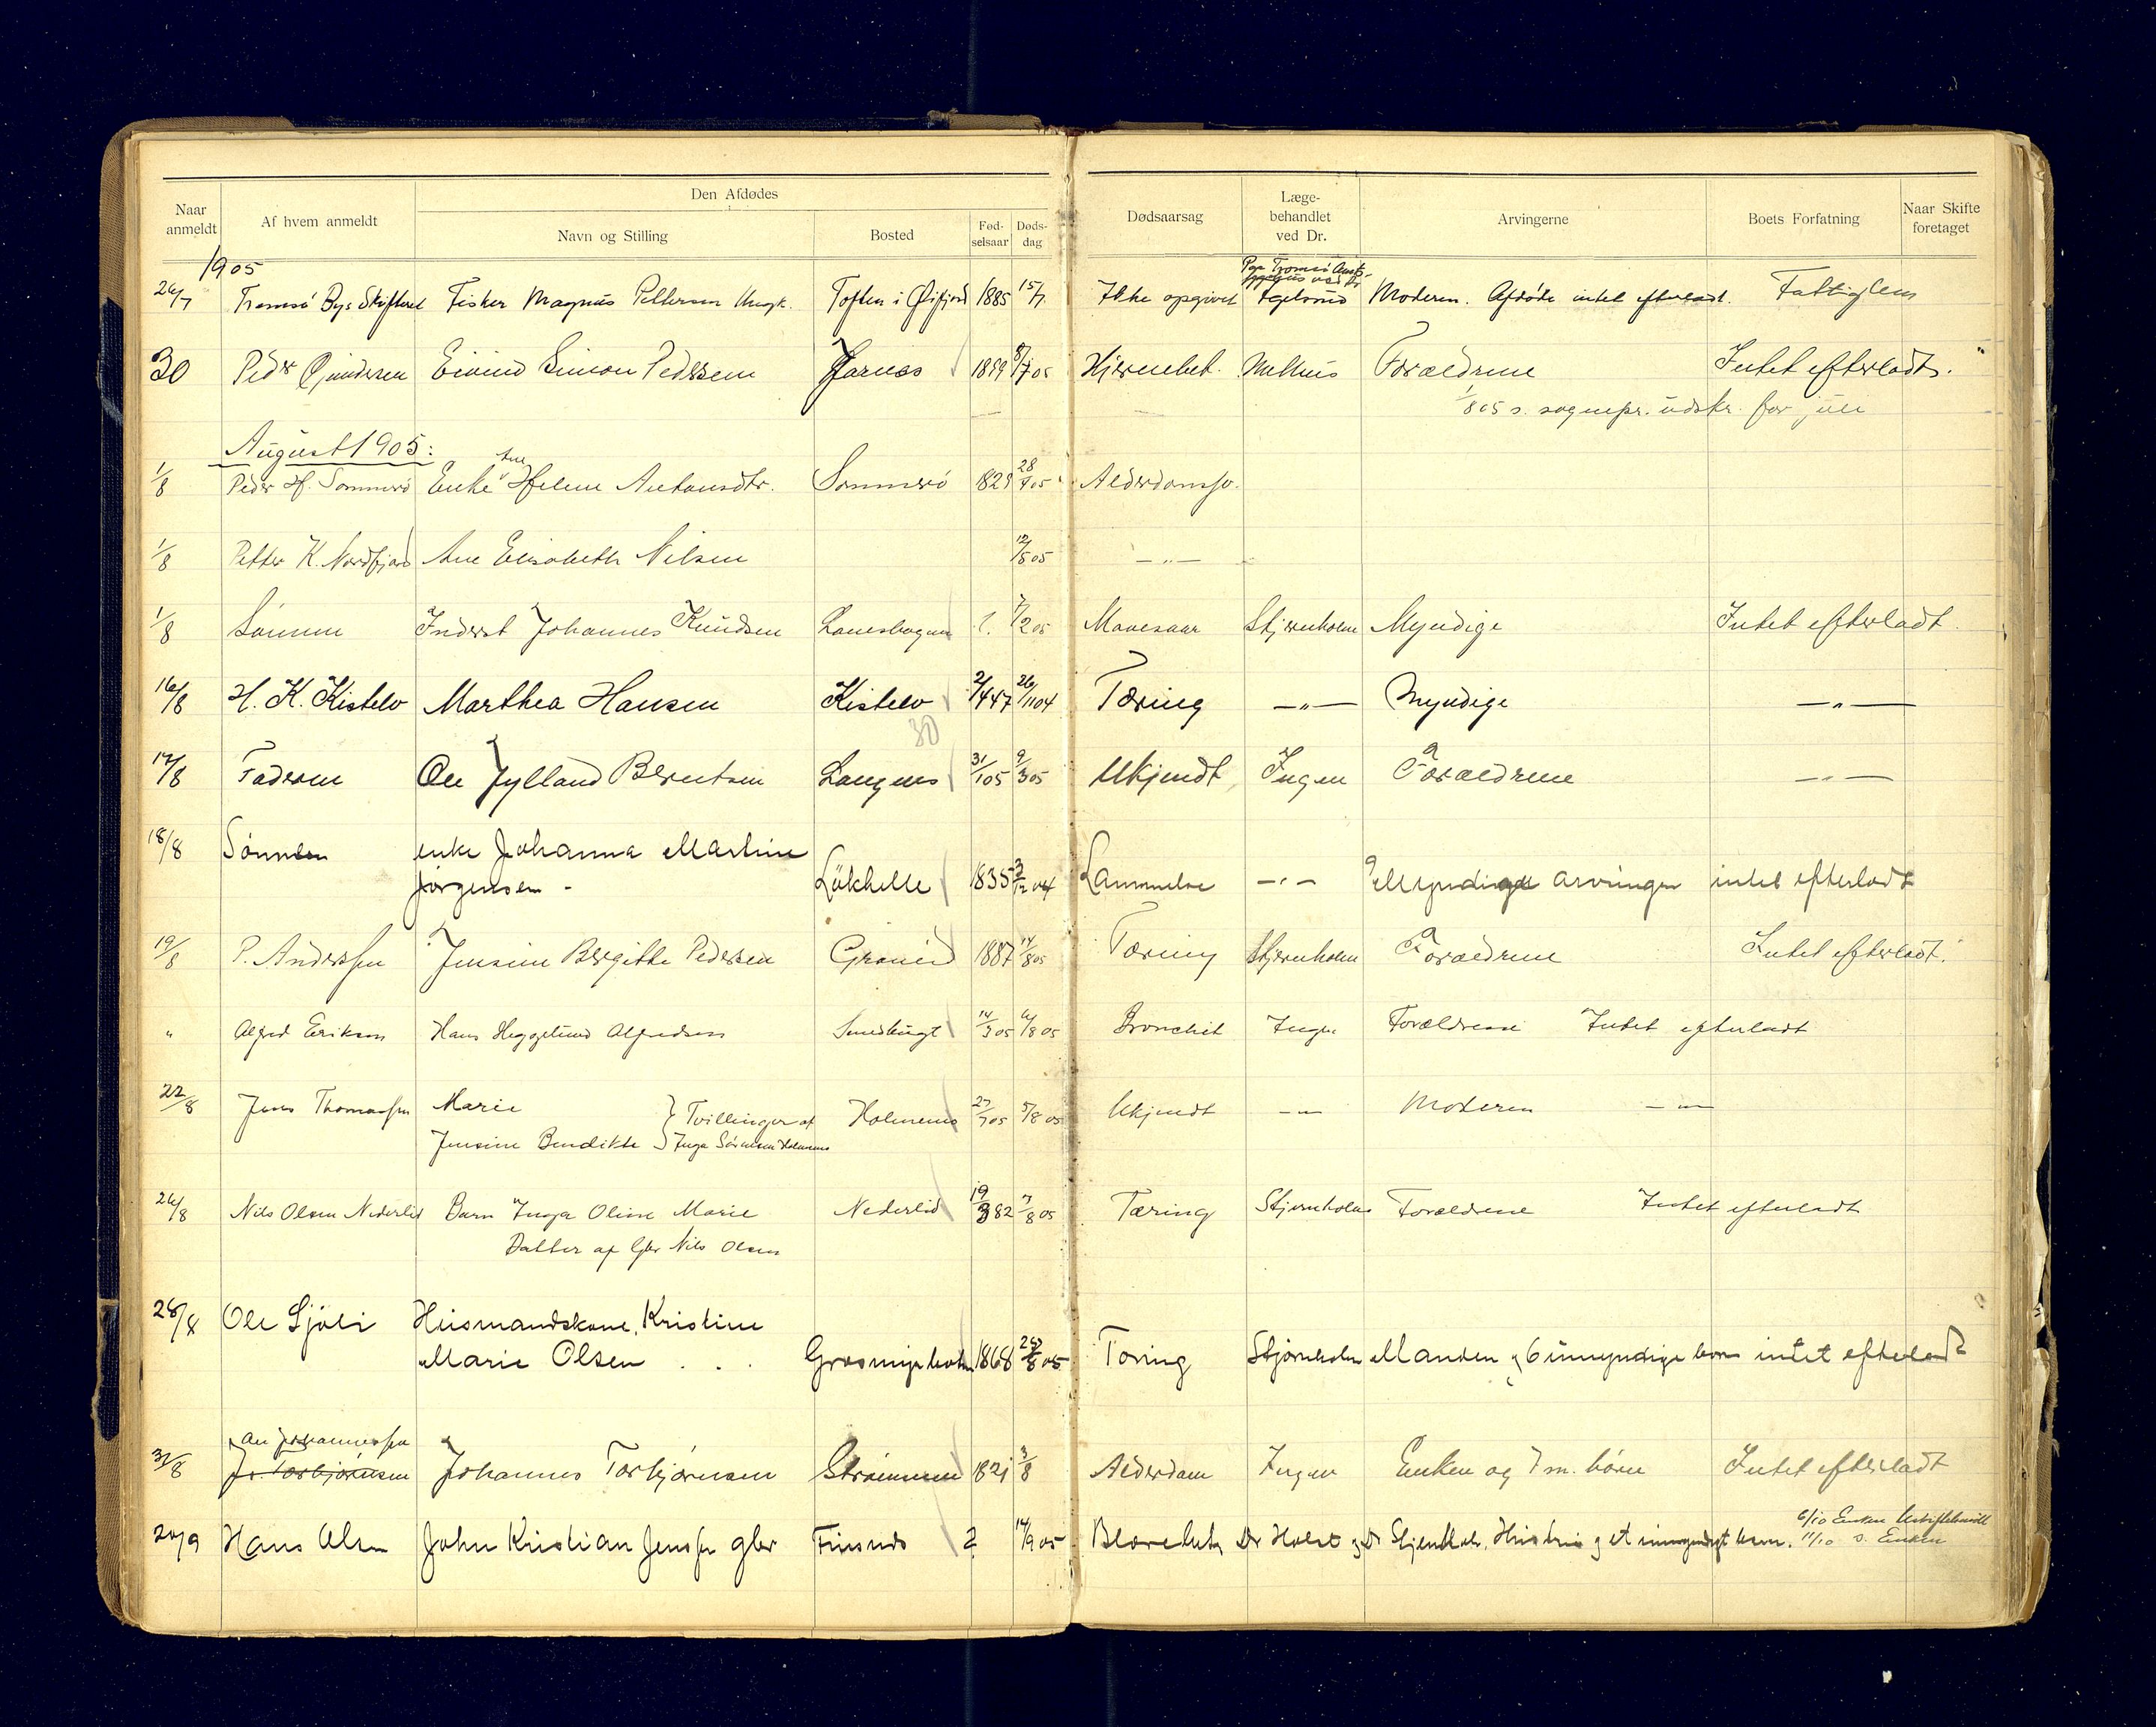 Naar anmeldt | Af hvem anmeldt | Den Afdødes | Navn og Stilling | Bosted | Fød-selsaar | Døds-dag | Dødsaarsag | Læge-behandlet ved Dr. | Arvingerne | Boets Forfatning | Naar Skifte foretaget
1905
26/7 Tromsø Bys Skifteret Fisker Magnus Pettersen Ungk. Toften i 1885 15/7 Ikke opgivet Moderen. Afdøde intet efterladt. Fattiglem
30 Peder Eivind Simon Pedersen 1899 8/7 05 Hjernebet. Forældrene Intet efterladt.
1/8 05 s. sognepr. udskr. for juli
August 1905:
1/8 Peder H. Sommerø Enke Ane Helene Antonsdtr. Sommerø 1829 28/7 05 Alderdomssv.
1/8 Petter K. Nordfjord Ane Elisabeth Nilsen 12/5 05 — " —
1/8 Sønnen Inderst Johannes Knudsen Lanesbogen ?. 7/2 05 Mavesaar Stjernholm Myndige Intet efterladt
16/8 H. K. Kistelv Marthea Hansen Kistelv 2/4 47 26/11 04 Tæring — " — Myndige — " —
30
17/8 Faderen Ole Jylland Berntsen Langnes 31/1 05 9/3 05 Ukjendt Ingen Forældrene — " —
18/8 Sønnen enke Johanna Martine
Jørgensen - Lökhelle 1835 2/12 04 Lammelse — " — Myndige arvinger intet efterladt
19/8 P. Anderssen Jensine Bergitte Pedersen 1887 14/8 05 Tæring Stjernholm Forældrene Intet efterladt.
" Alfred Eriksen Hans Heggelund Alfredsen Smedbugt 14/3 05 6/8 05 Bronchit Ingen Forældrene Intet efterladt
22/8 Jens Thomassen Marie } Tvillinger af Holmenes 27/7 05 5/8 05 Ukjendt — " — Moderen — " —
Jensine Bendikte } Inga Sørensen Holmenes
26/8 Nils Olsen Nederlid Barn Inga Oline Marie Nederlid 19/3 82 7/8 05 Tæring Stjernholm Forældrene Intet efterladt
Datter af Gbr Nils Olsen
28/8 Ole Sjöli Husmandskone, Kristine
Marie Olsen . . . 1868 25/8 05 Tæring Stjernholm Manden og 6 umyndige børn intet efterladt
An Johannessen
31/8 Jo. Torbjørnsen Johannes Torbjørnsen Strømmen 1821 3/8 Alderdom Ingen Enken og 7 m. børn Intet efterladt
20/9 Hans Olsen John Kristian Jenssen gbr Finsnes ? 14/9 05 Blærebet. Dr Holst og Dr Stjernholm. Hustru og et umyndigt barn. 6/10 Enken
11/10 s. Enken